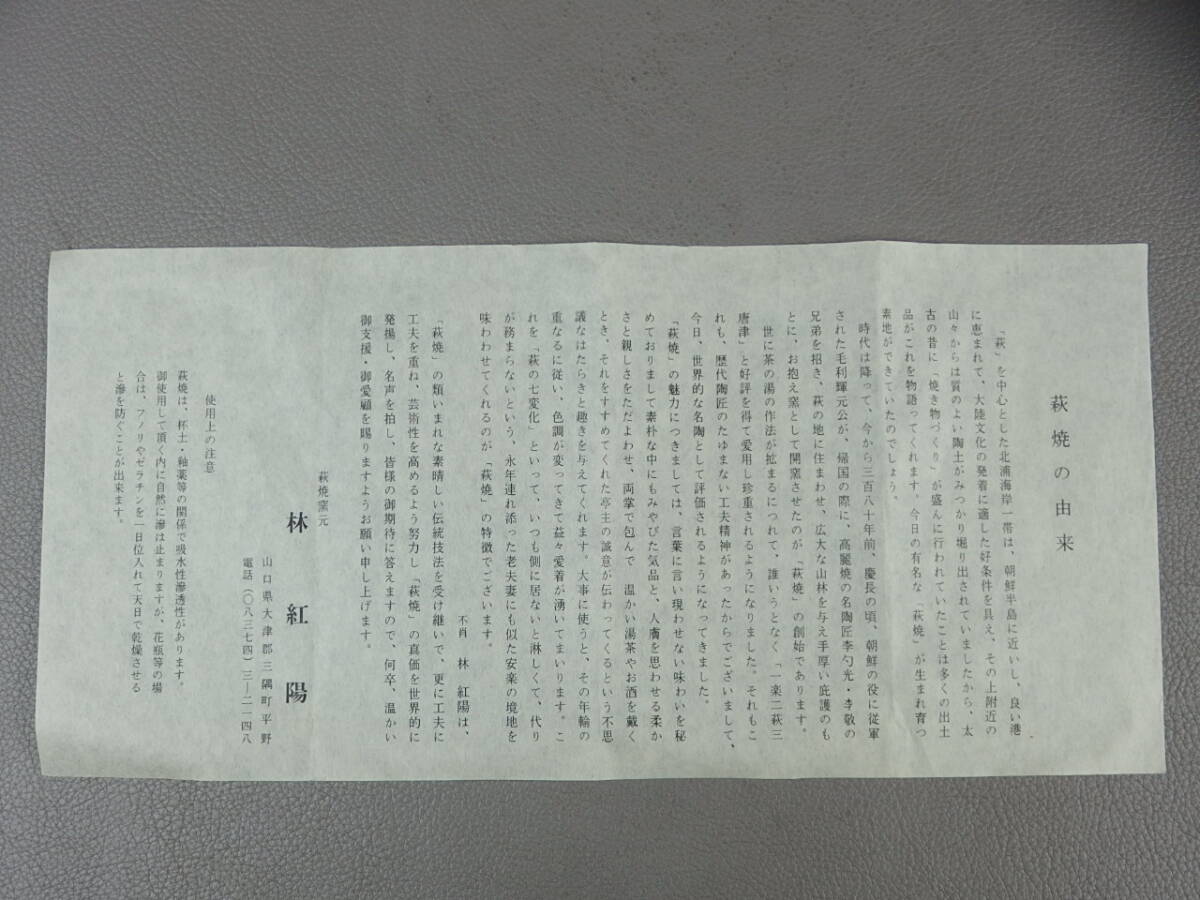 萩焼の由来
「萩」を中心とした北浦海岸一帯は、朝鮮半島に近いし、良い港
に恵まれて、大陸文化の発着に適した好条件を具え、その上附近の
山々からは質のよい陶土がみつかり堀り出されていましたから、太
古の昔に「焼き物づくり」が盛んに行われていたことは多くの出土
品がこれを物語ってくれます。今日の有名な「萩焼」が生まれ育つ
素地ができていたのでしょう。
時代は降って、今から三百八十年前、慶長の頃、朝鮮の役に従軍
された毛利輝元公が、帰国の際に、高麗焼の名陶匠李勺光・李敬の
兄弟を招き、萩の地に住まわせ、広大な山林を与え手厚い庇護のも
とに、お抱え窯として開窯させたのが「萩焼」の創始であります。
世に茶の湯の作法が拡まるにつれて、誰いうとなく「一楽二萩三
唐津」と好評を得て愛用し珍重されるようになりました。それもこ
れも、歴代陶匠のたゆまない工夫精神があったからでございまして、
今日、世界的な名陶として評価されるようになってきました。
「萩焼」の魅力につきましては、言葉に言い現わせない味わいを秘
めておりまして素朴な中にもみやびた気品と、人膚を思わせる柔か
さと親しさをただよわせ、両掌で包んで 温かい湯茶やお酒を戴く
とき、それをすすめてくれた亭主の誠意が伝わってくるという不思
議なはたらきと趣きを与えてくれます。大事に使うと、その年輪の
重なるに従い、色調が変ってきて益々愛着が湧いてまいります。こ
れを「萩の七変化」といって、いつも側に居ないと淋しくて、代り
が務まらないという、永年連れ添った老夫妻にも似た安楽の境地を
味わわせてくれるのが「萩焼」の特徴でございます。
不肖 林 紅陽は、
「萩焼」の類いまれな素晴しい伝統技法を受け継いで、更に工夫に
工夫を重ね、芸術性を高めるよう努力し「萩焼」の真価を世界的に
発揚し、名声を拍し、皆様の御期待に答えますので、何卒、温かい
御支援・御愛顧を賜りますようお願い申し上げます。
萩焼窯元
林 紅 陽
山口県大津郡三隅町平野
電話(〇八三七四)三―二一四八
使用上の注意
萩焼は、杯土・釉薬等の関係で吸水性滲透性があります。
御使用して頂く内に自然に滲は止まりますが、花瓶等の場
合は、フノリやゼラチンを一日位入れて天日で乾燥させる
と滲を防ぐことが出来ます。